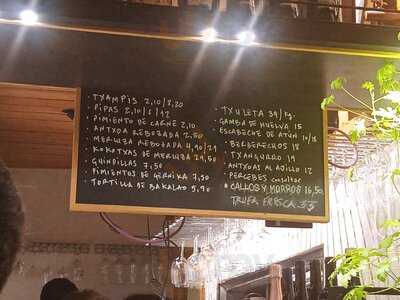 · TXAMPIS 2,10/8,20
· PIPAS 2,10/6/12
· PIMIENTO DE CARNE 2,10
· ANTXOA REBOZADA 2,50
· MERLUZA REBOZADA 4,90/29
· KOKOTXAS DE MERLUZA 29,50
· GUINDILLAS 7,50
· PIMIENTOS DE GERNIKA 7,50
· TORTILLA DE BAKALAO 5,90
· TXULETA 39/kg.
· GAMBA DE HUELVA 15
· ESCABECHE DE ATÚN 10/18
· BERBERECHOS 18
· TXANGURRO 19
· ANTXOAS AL AJILLO 12
· PERCEBES consultar
· CALLOS Y MORROS 16,50
TRUFA FRESCA